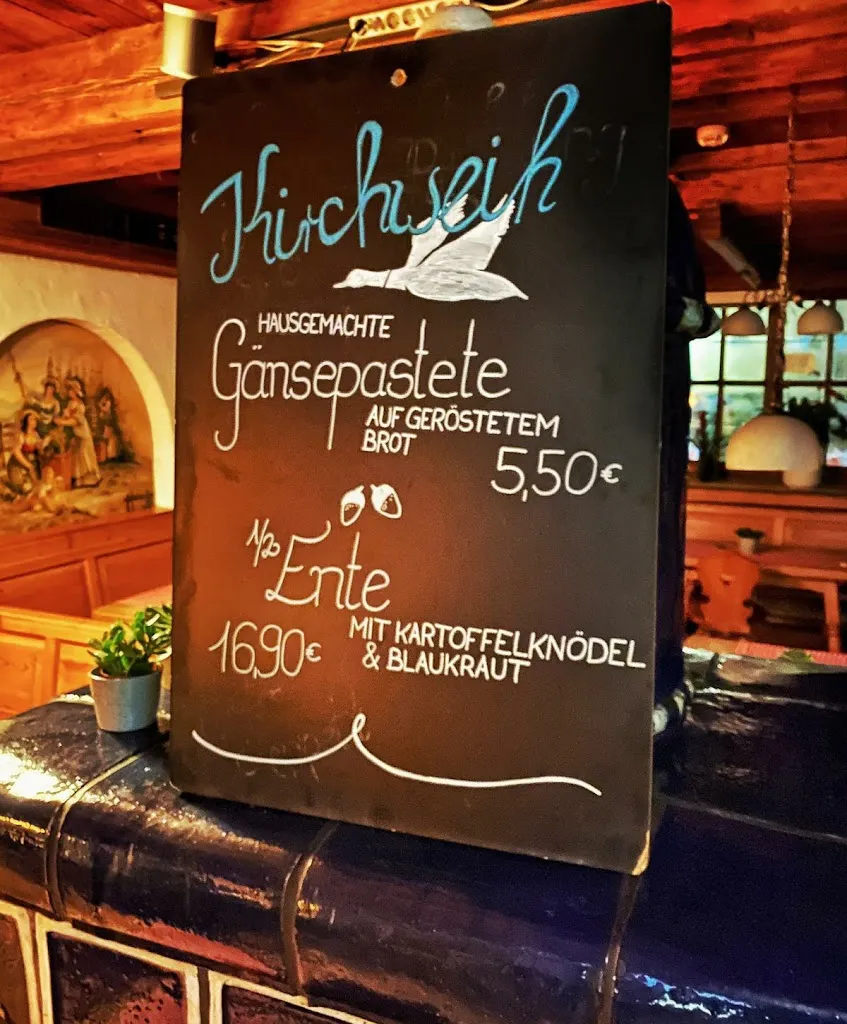 Kirchweih
HAUSGEMACHTE
Gänsepastete
AUF GERÖSTETEM
BROT
5,50€
1/2 Ente
16,90€
MIT KARTOFFELKNÖDEL
& BLAUKRAUT